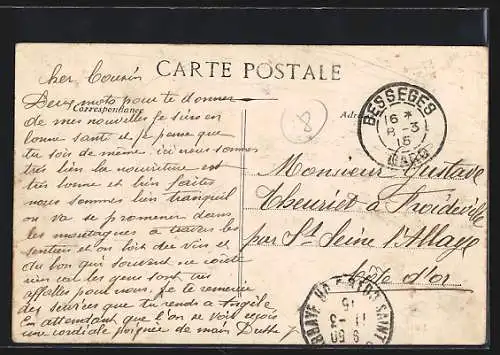 CARTE POSTALE
Correspondance
Cher Cousin
Deux mots pour te donner
de mes nouvelles je suis en
bonne santé et je pense que
tu sois de même ici nous sommes
très bien la nourriture est
très bonne et bien faites
nous sommes bien tranquil
on va se promener dans
les montagnes à travers les
sentiers et on boit du vin et
du bon qui souvent ne coûte
rien car les gens sont très
affables pour nous. je te remercie
des services que tu rends a Angèle
En attendant que l'on se voit reçois
une cordiale poignée de main
8
BESSEGES
16 *
8-3
15
GARD
Monsieur Gustave
Theuriet à Froideville
par St Seine l'Abbaye
Côte d'or
11-3
15